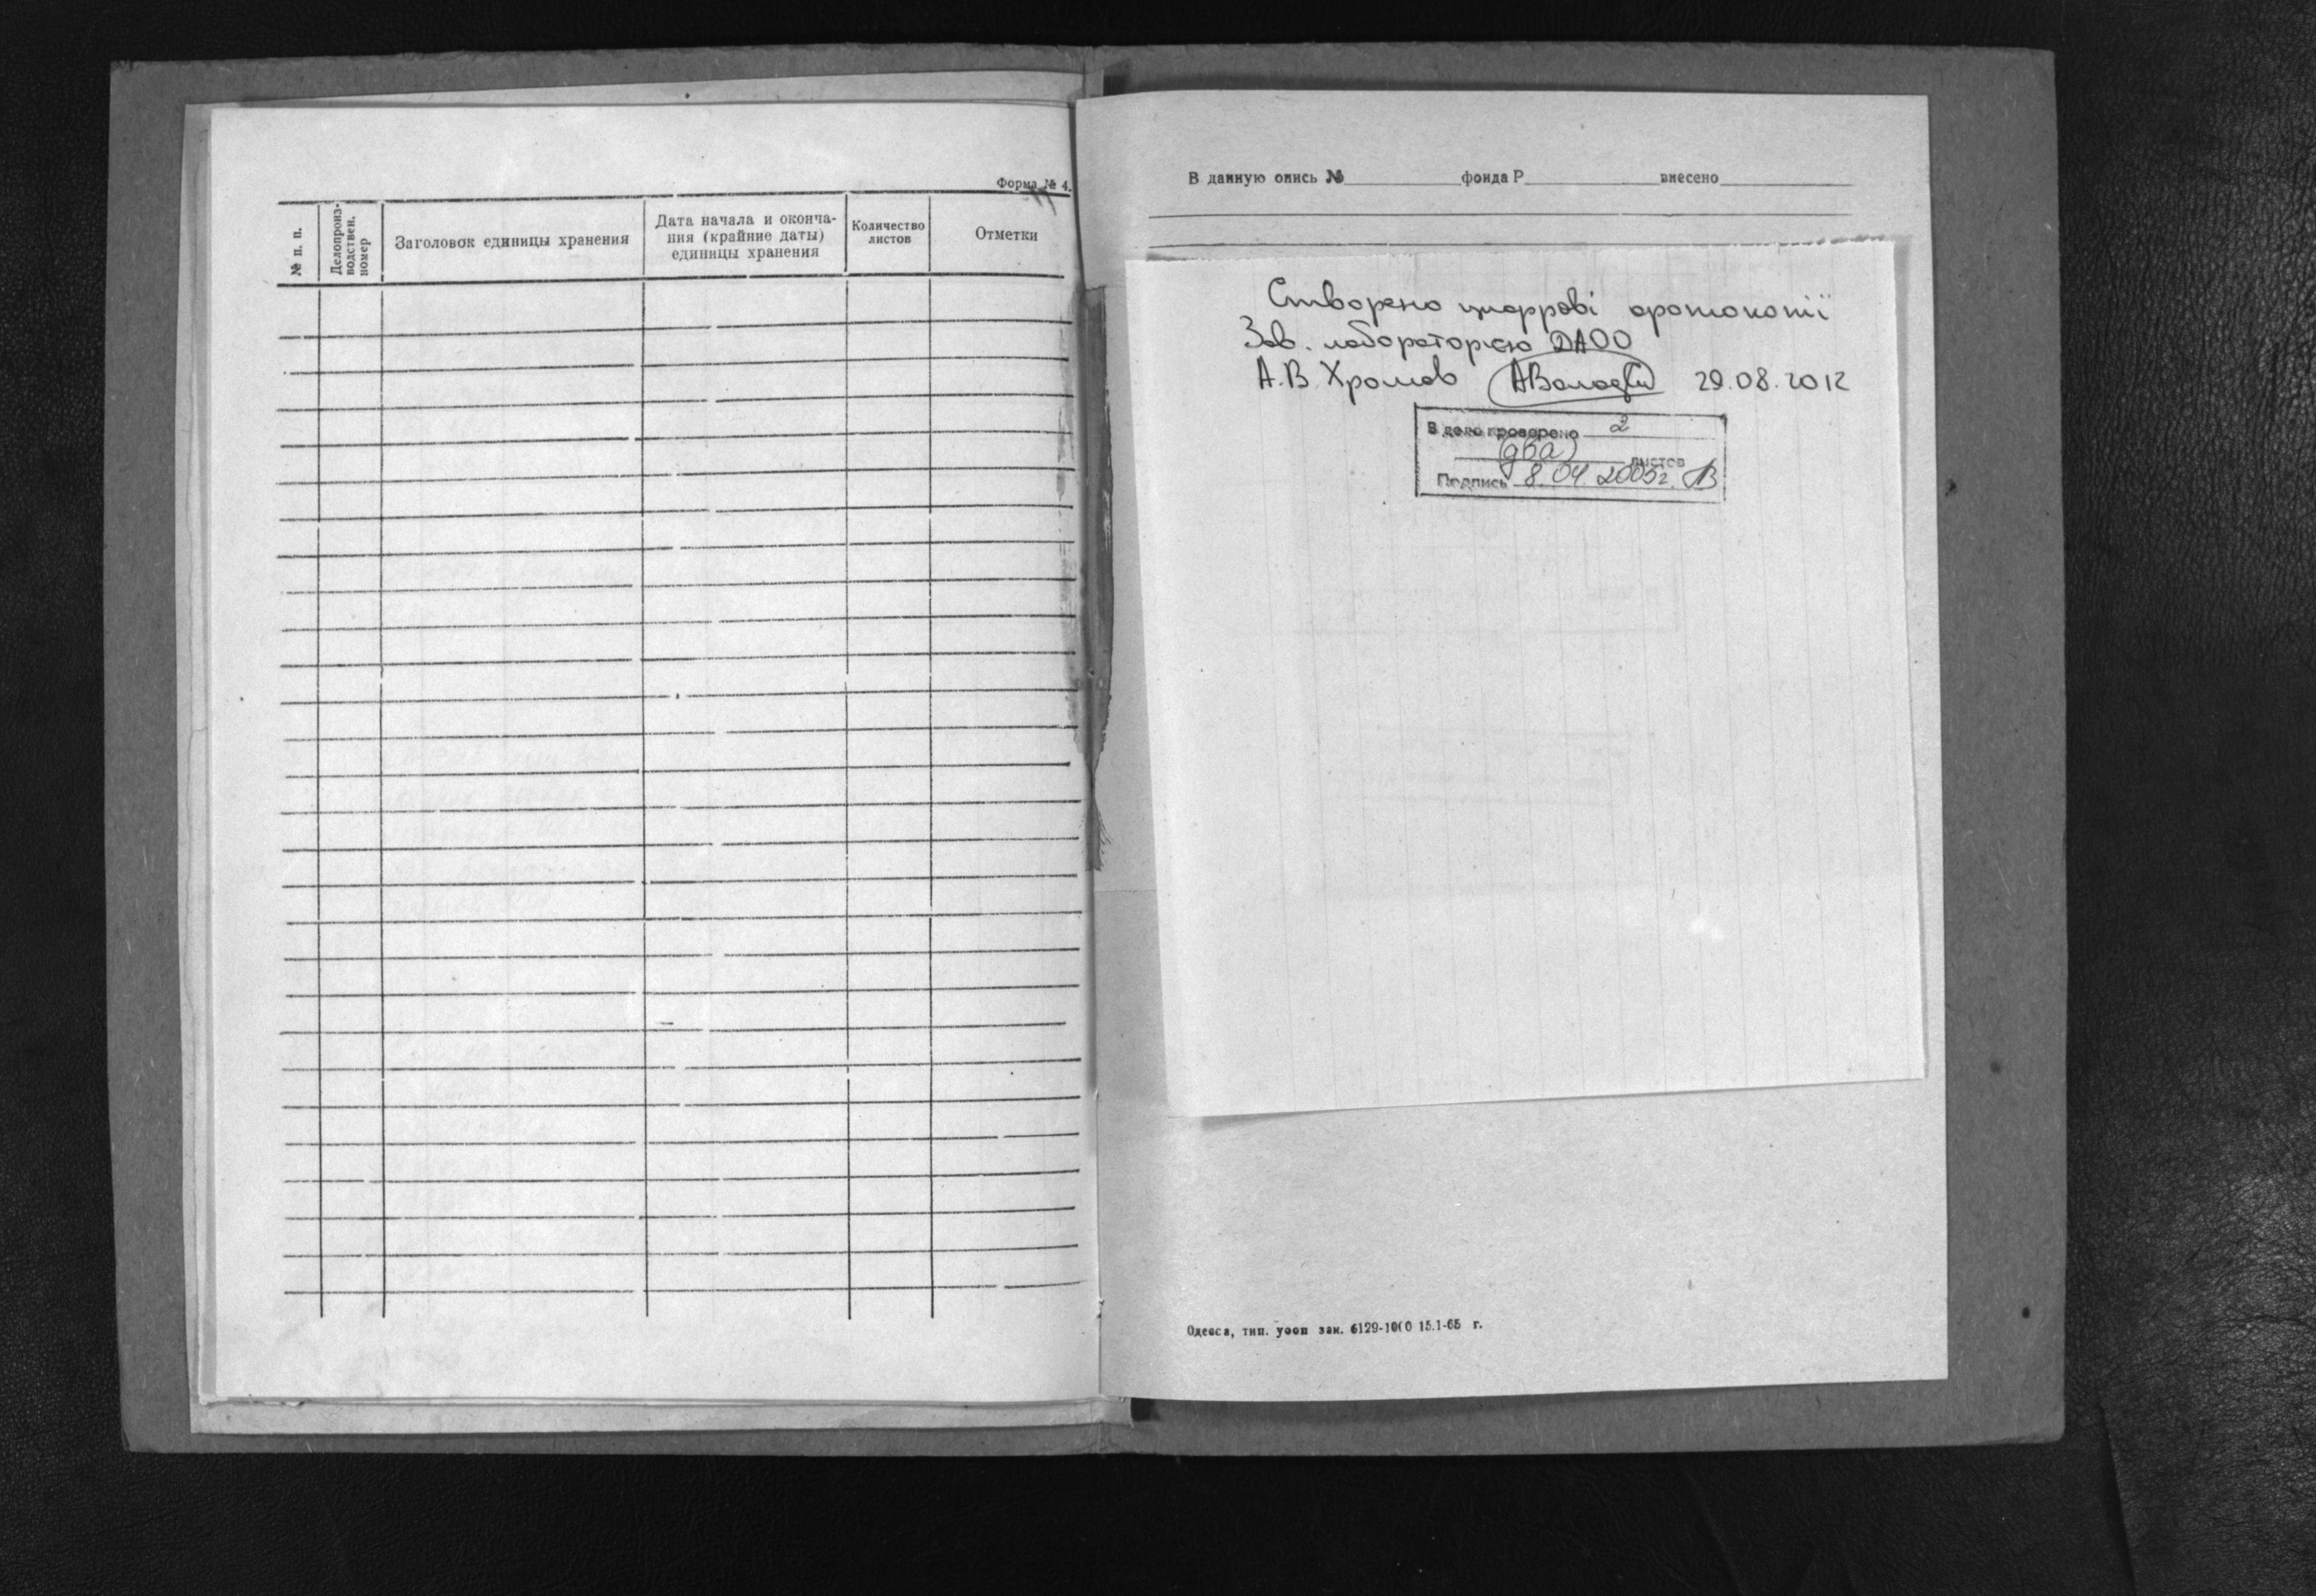 Форма № 4.
№ п. п.
Делопроиз-
водствен.
номер
Заголовок единицы хранения
Дата начала и оконча-
ния (крайние даты)
единицы хранения
Количество
листов
Отметки
В данную опись № фонда Р внесено
Створено цифрові фотокопії
Зав. лабораторією ДАОО
А.В. Хромов 29.08.2012
В деле проверено 2
(два) листов
Подпись 8.04.2005г.
Одесса, тип. уооп зак. 6129-1000 15.1-65 г.